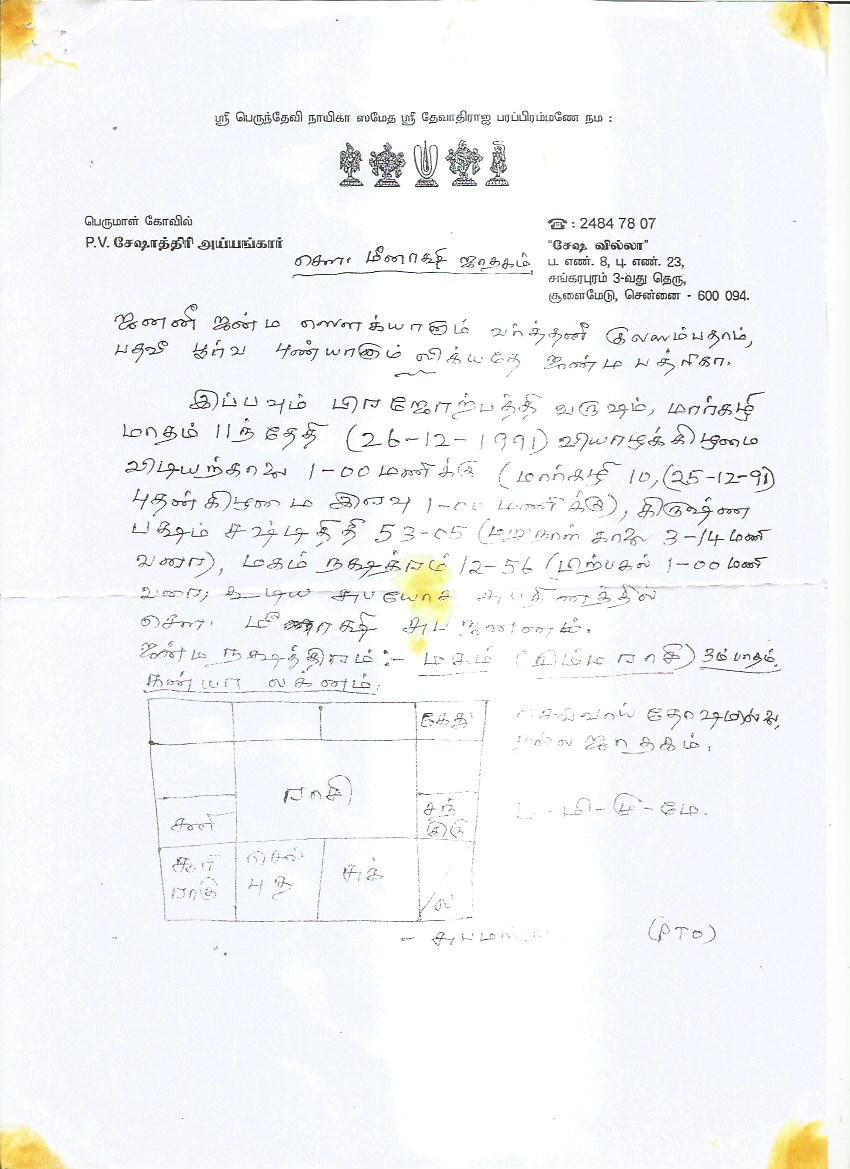 ஸ்ரீ பெருந்தேவி நாயிகா ஸமேத ஸ்ரீ தேவாதிராஜ பரப்பிரம்மணே நம :
பெருமாள் கோவில்
P.V. சேஷாத்திரி அய்யங்கார்
☎ : 2484 78 07
"சேஷ வில்லா"
ப. எண். 8, பு. எண். 23,
சங்கரபுரம் 3-வது தெரு,
சூளைமேடு, சென்னை - 600 094.
சௌ. மீனாக்ஷி ஜாதகம்.
ஜனனீ ஜன்ம ஸௌக்யானாம் வர்த்தனீ குலஸம்பதாம்,
பதவீ பூர்வ புண்யானாம் லிக்யதே ஜன்ம பத்ரிகா.
இப்பவும் பிரஜோற்பத்தி வருஷம், மார்கழி
மாதம் 11ந் தேதி (26-12-1991) வியாழக்கிழமை
விடியற்காலை 1-00 மணிக்கு (மார்கழி 10, (25-12-91)
புதன்கிழமை இரவு 1-00 மணிக்கு), கிருஷ்ண
பக்ஷம் சஷ்டி திதி 53-05 (மறுநாள் காலை 3-14 மணி
வரை), மகம் நக்ஷத்ரம் 12-56 (பிற்பகல் 1-00 மணி
வரை, கூடிய சுபயோக சுபதினத்தில்
சௌ. மீனாக்ஷி சுப ஜனனம்.
ஜன்ம நக்ஷத்திரம் :- மகம் (சிம்ம ராசி) 3ம் பாதம்.
கன்யா லக்னம்.
கேது
செவ்வாய் தோஷமில்லை,
நல்ல ஜாதகம்.
ராசி
சனி
சந்
குரு
சூரி
ராகு
செவ்
புத
சுக்
ல
(PTO)